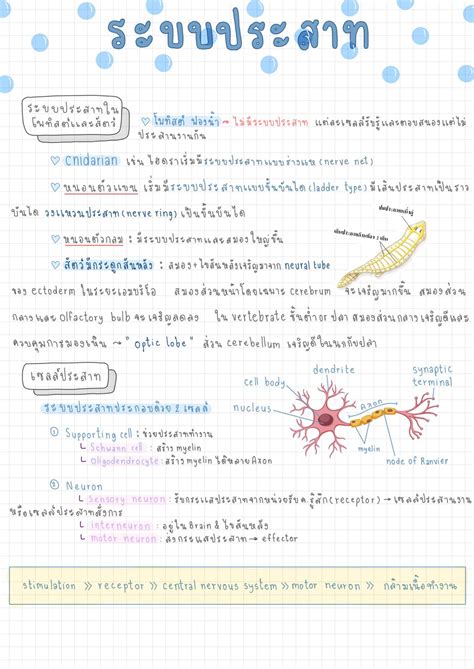 ระบบประสาท
ระบบประสาทใน
โพทิสต์และสัตว์
♡ โพทิสต์ ฟองน้ำ → ไม่มีระบบประสาท แต่ละเซลล์รับรู้และตอบสนองแต่ไม่
ประสานงานกัน
♡ Cnidarian เช่น ไฮดราเริ่มมีระบบประสาทแบบร่างแห (nerve net)
♡ หนอนตัวแบน เริ่มมีระบบประสาทแบบขั้นบันได (ladder type) มีเส้นประสาทเป็นรา
บันได วงแหวนประสาท (nerve ring) เป็นขั้นบันได
♡ หนอนตัวกลม : มีระบบประสาทและสมองใหญ่ขึ้น
♡ สัตว์มีกระดูกสันหลัง : สมอง+ไขสันหลังเจริญมาจาก neural tube
ของ ectoderm ในระยะเอมบริโอ สมองส่วนหน้าโดยเฉพาะ cerebrum จะเจริญมากขึ้น สมองส่วน
กลางและ Olfactory bulb จะเจริญลดลง ใน vertebrate ชั้นต่ำ or ปลา สมองส่วนกลางเจริญดีและ
ควบคุมการมองเห็น → " optic lobe " ส่วน cerebellum เจริญดีในนกกับปลา
เซลล์ประสาท
ระบบประสาทประกอบด้วย 2 เซลล์
① Supporting cell : ช่วยประสาททำงาน
Schwann cell : สร้าง myelin
Oligodendrocyte : สร้าง myelin ได้หลาย Axon
② Neuron
Sensory neuron : รับกระแสประสาทจากหน่วยรับค.รู้สึก (receptor) → เซลล์ประสานงาน
หรือเซลล์ประสาทสั่งการ
interneuron : อยู่ใน Brain & ไขสันหลัง
motor neuron : ส่งกระแสประสาท → effector
dendrite
cell body
nucleus
Axon
synaptic
terminal
myelin
node of Ranvier
stimulation » receptor » central nervous system » motor neuron » กล้ามเนื้อทำงาน